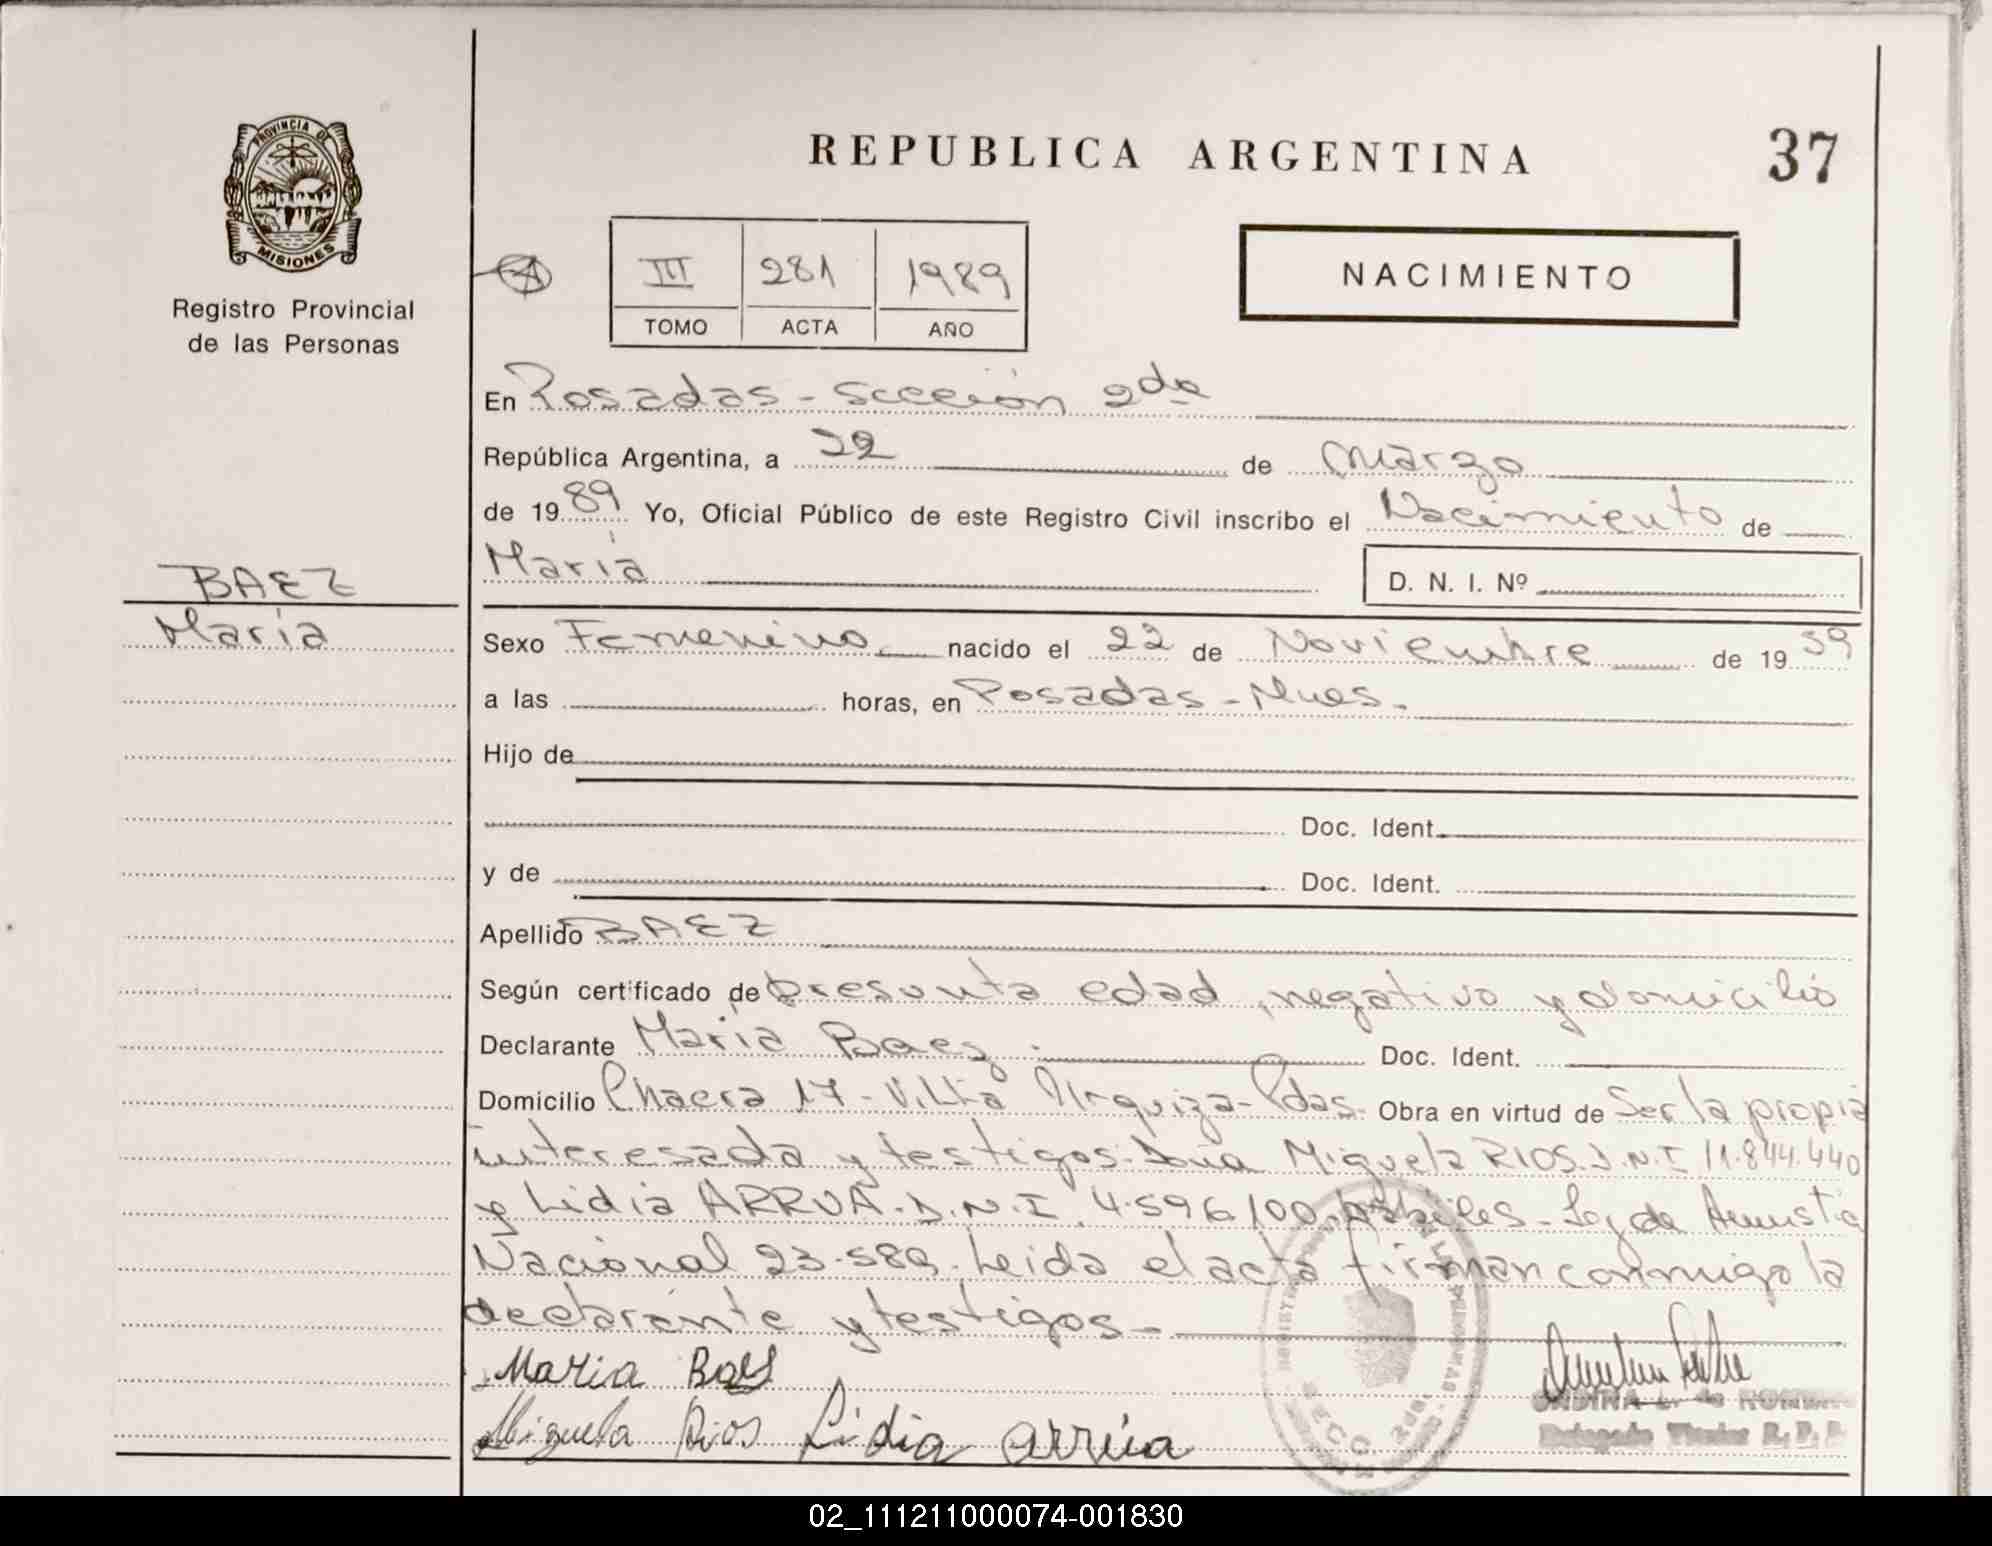 PROVINCIA DE
MISIONES
Registro Provincial
de las Personas
REPUBLICA ARGENTINA
37
III 281 1989
TOMO ACTA AÑO
NACIMIENTO
En Posadas - Sección 2da
República Argentina, a 22 de Marzo
de 1989 Yo, Oficial Público de este Registro Civil inscribo el Nacimiento de
María
D. N. I. Nº
BAEZ
María
Sexo Femenino nacido el 22 de Noviembre de 1959
a las horas, en Posadas - Mnes.
Hijo de
Doc. Ident.
y de Doc. Ident.
Apellido BAEZ
Según certificado de presunta edad, negativo y domicilio
Declarante María Baez Doc. Ident.
Domicilio Chacra 17 - Villa Urquiza - Pdas. Obra en virtud de Ser la propia
interesada y testigos: Doña Miguela RIOS. D.N.I 11.844.440
y Lidia ARRUA. D.N.I. 4.596.100 hábiles - Ley de Amnistia
Nacional 23.589. Leida el acta firman conmigo la
declarante y testigos -
Maria Baes
Miguela Rios Lidia arrua
Delegado Titular R. P. P.
02_111211000074-001830